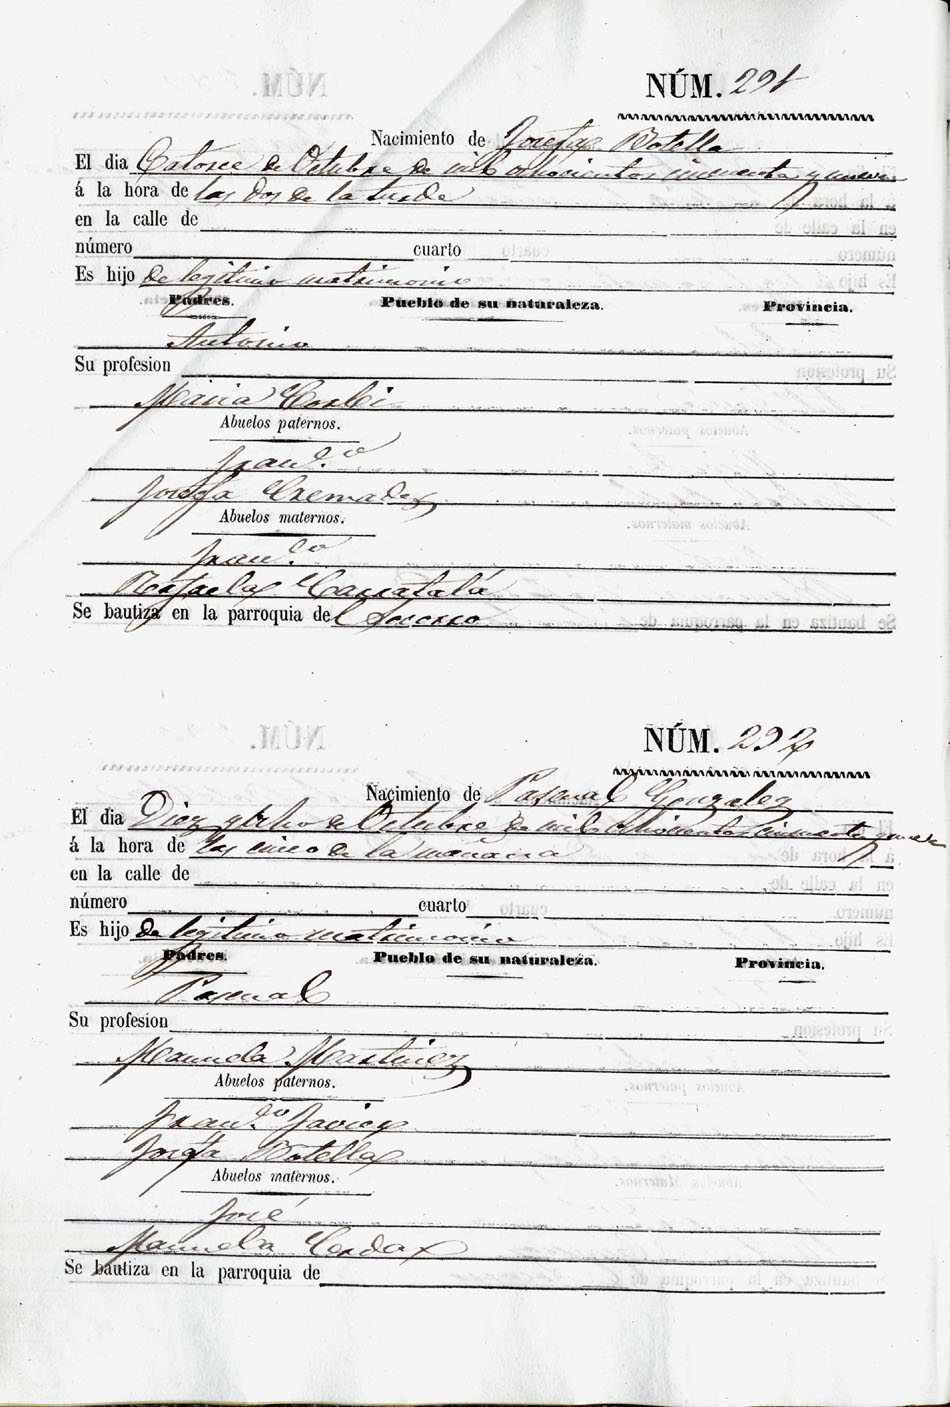 NÚM. 291
Nacimiento de Josefa Botella
El dia Catorce de Octubre de mil ochocientos cincuenta y nueve
á la hora de las dos de la tarde
en la calle de
número cuarto
Es hijo de legitimo matrimonio
Padres. Pueblo de su naturaleza. Provincia.
Antonio
Su profesion
Maria Corbi
Abuelos paternos.
Fran.co
Josefa Cremades
Abuelos maternos.
Fran.co
Rafaela Carratalá
Se bautiza en la parroquia del Socorro
NÚM. 292
Nacimiento de Pascual Gonzalez
El dia Diez y ocho de Octubre de mil ochocientos cincuenta y nueve
á la hora de las cinco de la mañana
en la calle de
número cuarto
Es hijo de legitimo matrimonio
Padres. Pueblo de su naturaleza. Provincia.
Pascual
Su profesion
Manuela Martinez
Abuelos paternos.
Fran.co Javier
Josefa Botella
Abuelos maternos.
José
Manuela Cerda
Se bautiza en la parroquia de